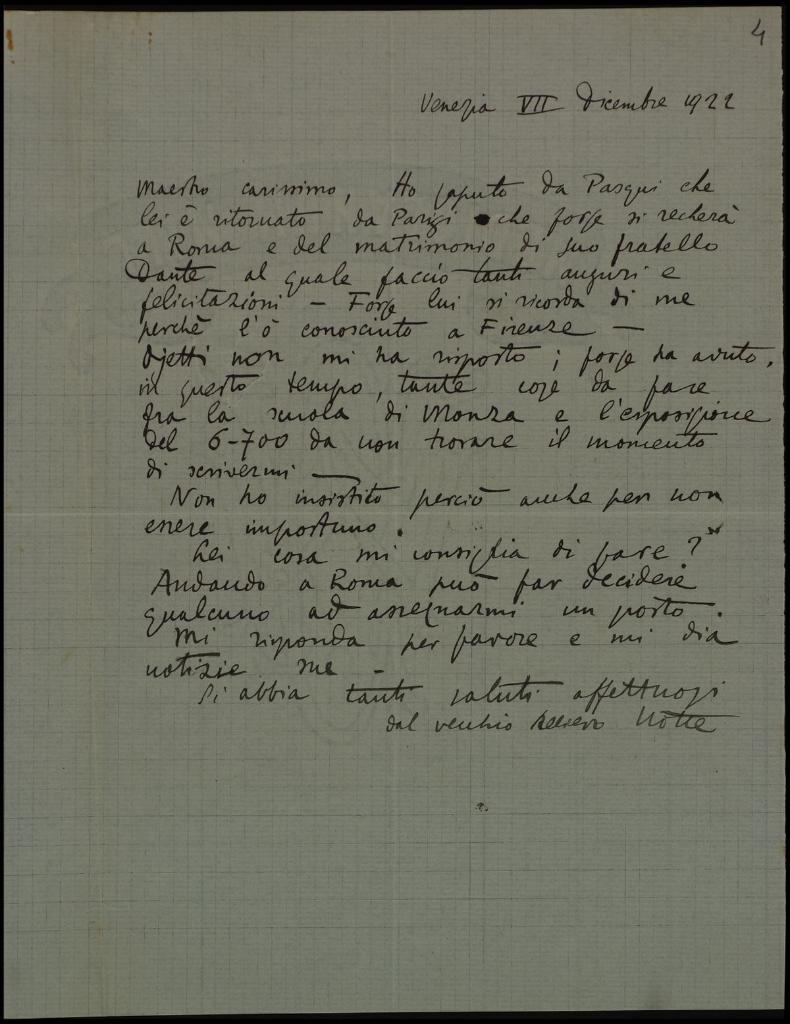 4
Venezia VII Dicembre 1922
Maestro carissimo, Ho saputo da Pasqui che
lei è ritornato da Parigi che forse si recherà
a Roma e del matrimonio di suo fratello
Dante al quale faccio tanti auguri e
felicitazioni — Forse lui si ricorda di me
perchè l'ò conosciuto a Firenze —
Ojetti non mi ha risposto ; forse ha avuto,
in questo tempo, tante cose da fare
fra la scuola di Monza e l'esposizione
del 6-700 da non trovare il momento
di scrivermi —
Non ho insistito perciò anche per non
essere importuno.
Lei cosa mi consiglia di fare ?
Andando a Roma può far decidere
qualcuno ad assegnarmi un posto.
Mi risponda per favore e mi dia
notizie sue -
Si abbia tanti saluti affettuosi
dal vecchio Notte